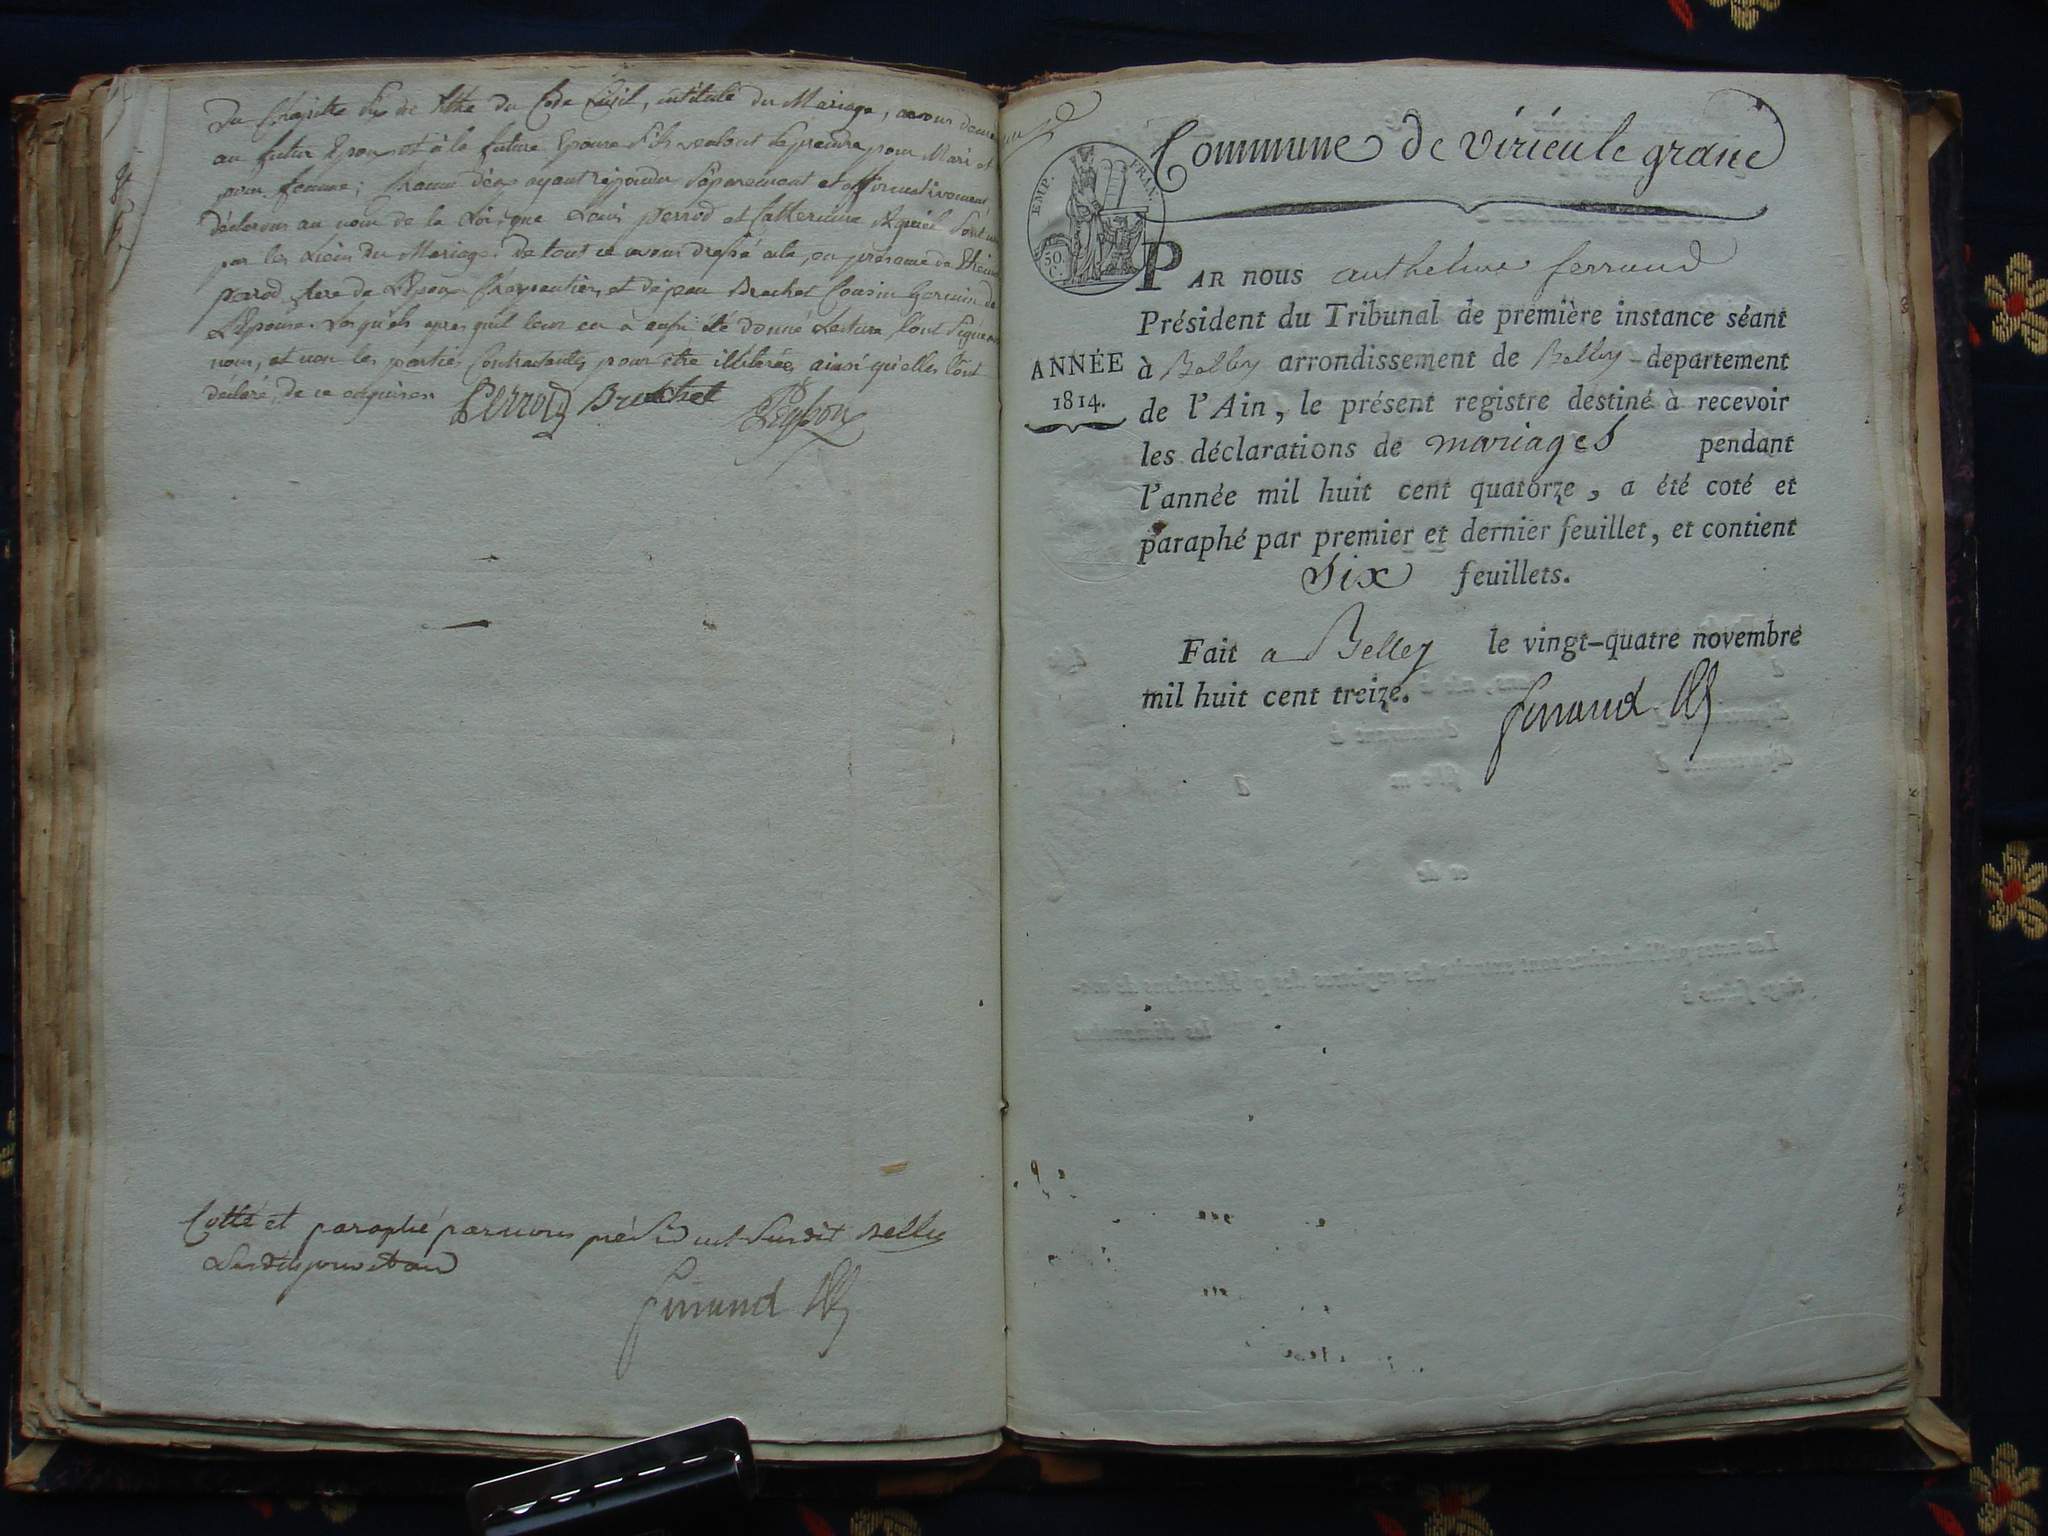 Du Chapitre du titre du Code Civil, intitulé du Mariage, avons demandé
au futur Epoux et à la future Epouse s'ils veulent se prendre pour Mari et
pour femme; chacun d'eux ayant répondu séparement et affirmativement,
déclarons au nom de la Loi, que Louis perrod et Catherine sont unis
par les Liens du Mariage. De tout ce avons dressé acte, en présence de
perrod, frere de L'Epoux Charpentier, et Brachet Cousin Germain de
L'Epouse. Lesquels apres qu'il leur en à aussi été donné Lecture, l'ont signé avec
nous, et non les parties Contractantes pour etre illiterées ainsi qu'elles l'ont
déclaré, de ce enquises.
Perrod Brachet
Cotté et paraphé par nous président susdit Belley
Les dits jour et an
ferrand
Commune de virieu le grand
EMP. FRAN.
50. C.
PAR NOUS anthelme ferrand
Président du Tribunal de première instance séant
à Belley arrondissement de Belley département
ANNÉE
1814.
de l'Ain, le présent registre destiné à recevoir
les déclarations de mariages pendant
l'année mil huit cent quatorze, a été coté et
paraphé par premier et dernier feuillet, et contient
Six feuillets.
Fait a Belley le vingt-quatre novembre
mil huit cent treize.
ferrand